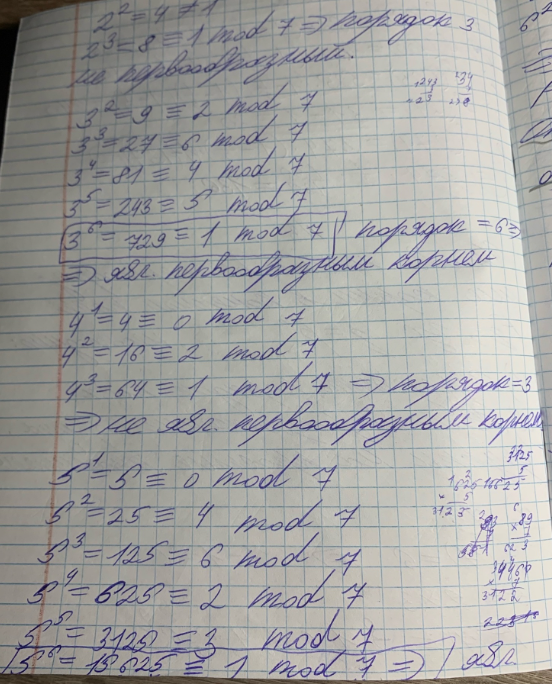 2² = 4 ≠ 1
2³ = 8 ≡ 1 mod 7 => порядок 3
не первообразный.
3² = 9 ≡ 2 mod 7
3³ = 27 ≡ 6 mod 7
3⁴ = 81 ≡ 4 mod 7
3⁵ = 243 ≡ 5 mod 7
3⁶ = 729 ≡ 1 mod 7 порядок = 6 =>
=> явл. первообразным корнем
4¹ = 4 ≡ 0 mod 7
4² = 16 ≡ 2 mod 7
4³ = 64 ≡ 1 mod 7 => порядок = 3
=> не явл. первообразным корнем
5¹ = 5 ≡ 0 mod 7
5² = 25 ≡ 4 mod 7
5³ = 125 ≡ 6 mod 7
5⁴ = 625 ≡ 2 mod 7
5⁵ = 3125 ≡ 3 mod 7
5⁶ = 15625 ≡ 1 mod 7 => явл